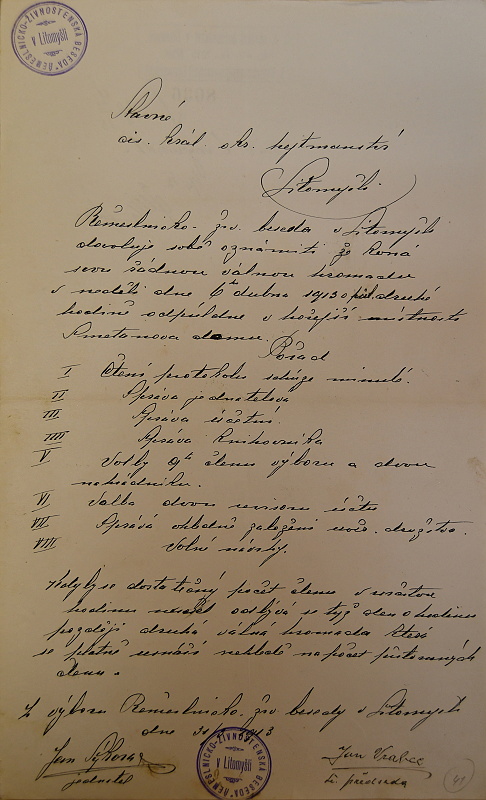 ŘEMESLNICKO-ŽIVNOSTENSKÁ BESEDA
v Litomyšli
Slavné
cís. král. okr. hejtmanství
Litomyšli
Řemeslnicko-živ. beseda v Litomyšli
dovoluje sobě oznámiti že koná
svou řádnou valnou hromadu
v neděli dne 6ho dubna 1913 o půl druhé
hodině odpoledne v hořejší místnosti
Smetanova domu.
Pořad
I Čtení protokolu schůze minulé.
II Správa jednatelova
III Správa účetní.
IIII Správa knihovníka
V Volby 9ti členu výboru a dvou
náhradníku.
VI Volba dvou revisoru účtu
VII Správa ohledně založení družstva.
VIII Volné návrhy.
Kdyby se dostatečný počet členu v určitou
hodinu nesešel odbývá se týž den o hodinu
později druhá valná hromada která
se platně usnáší nehledě na počet přítomných
členu.
Z výboru Řemeslnicko-živ besedy v Litomyšli
dne 1913
Jan Sýkora
jednatel
ŘEMESLNICKO-ŽIVNOSTENSKÁ BESEDA
v Litomyšli
Jan Vrabec
předseda
41